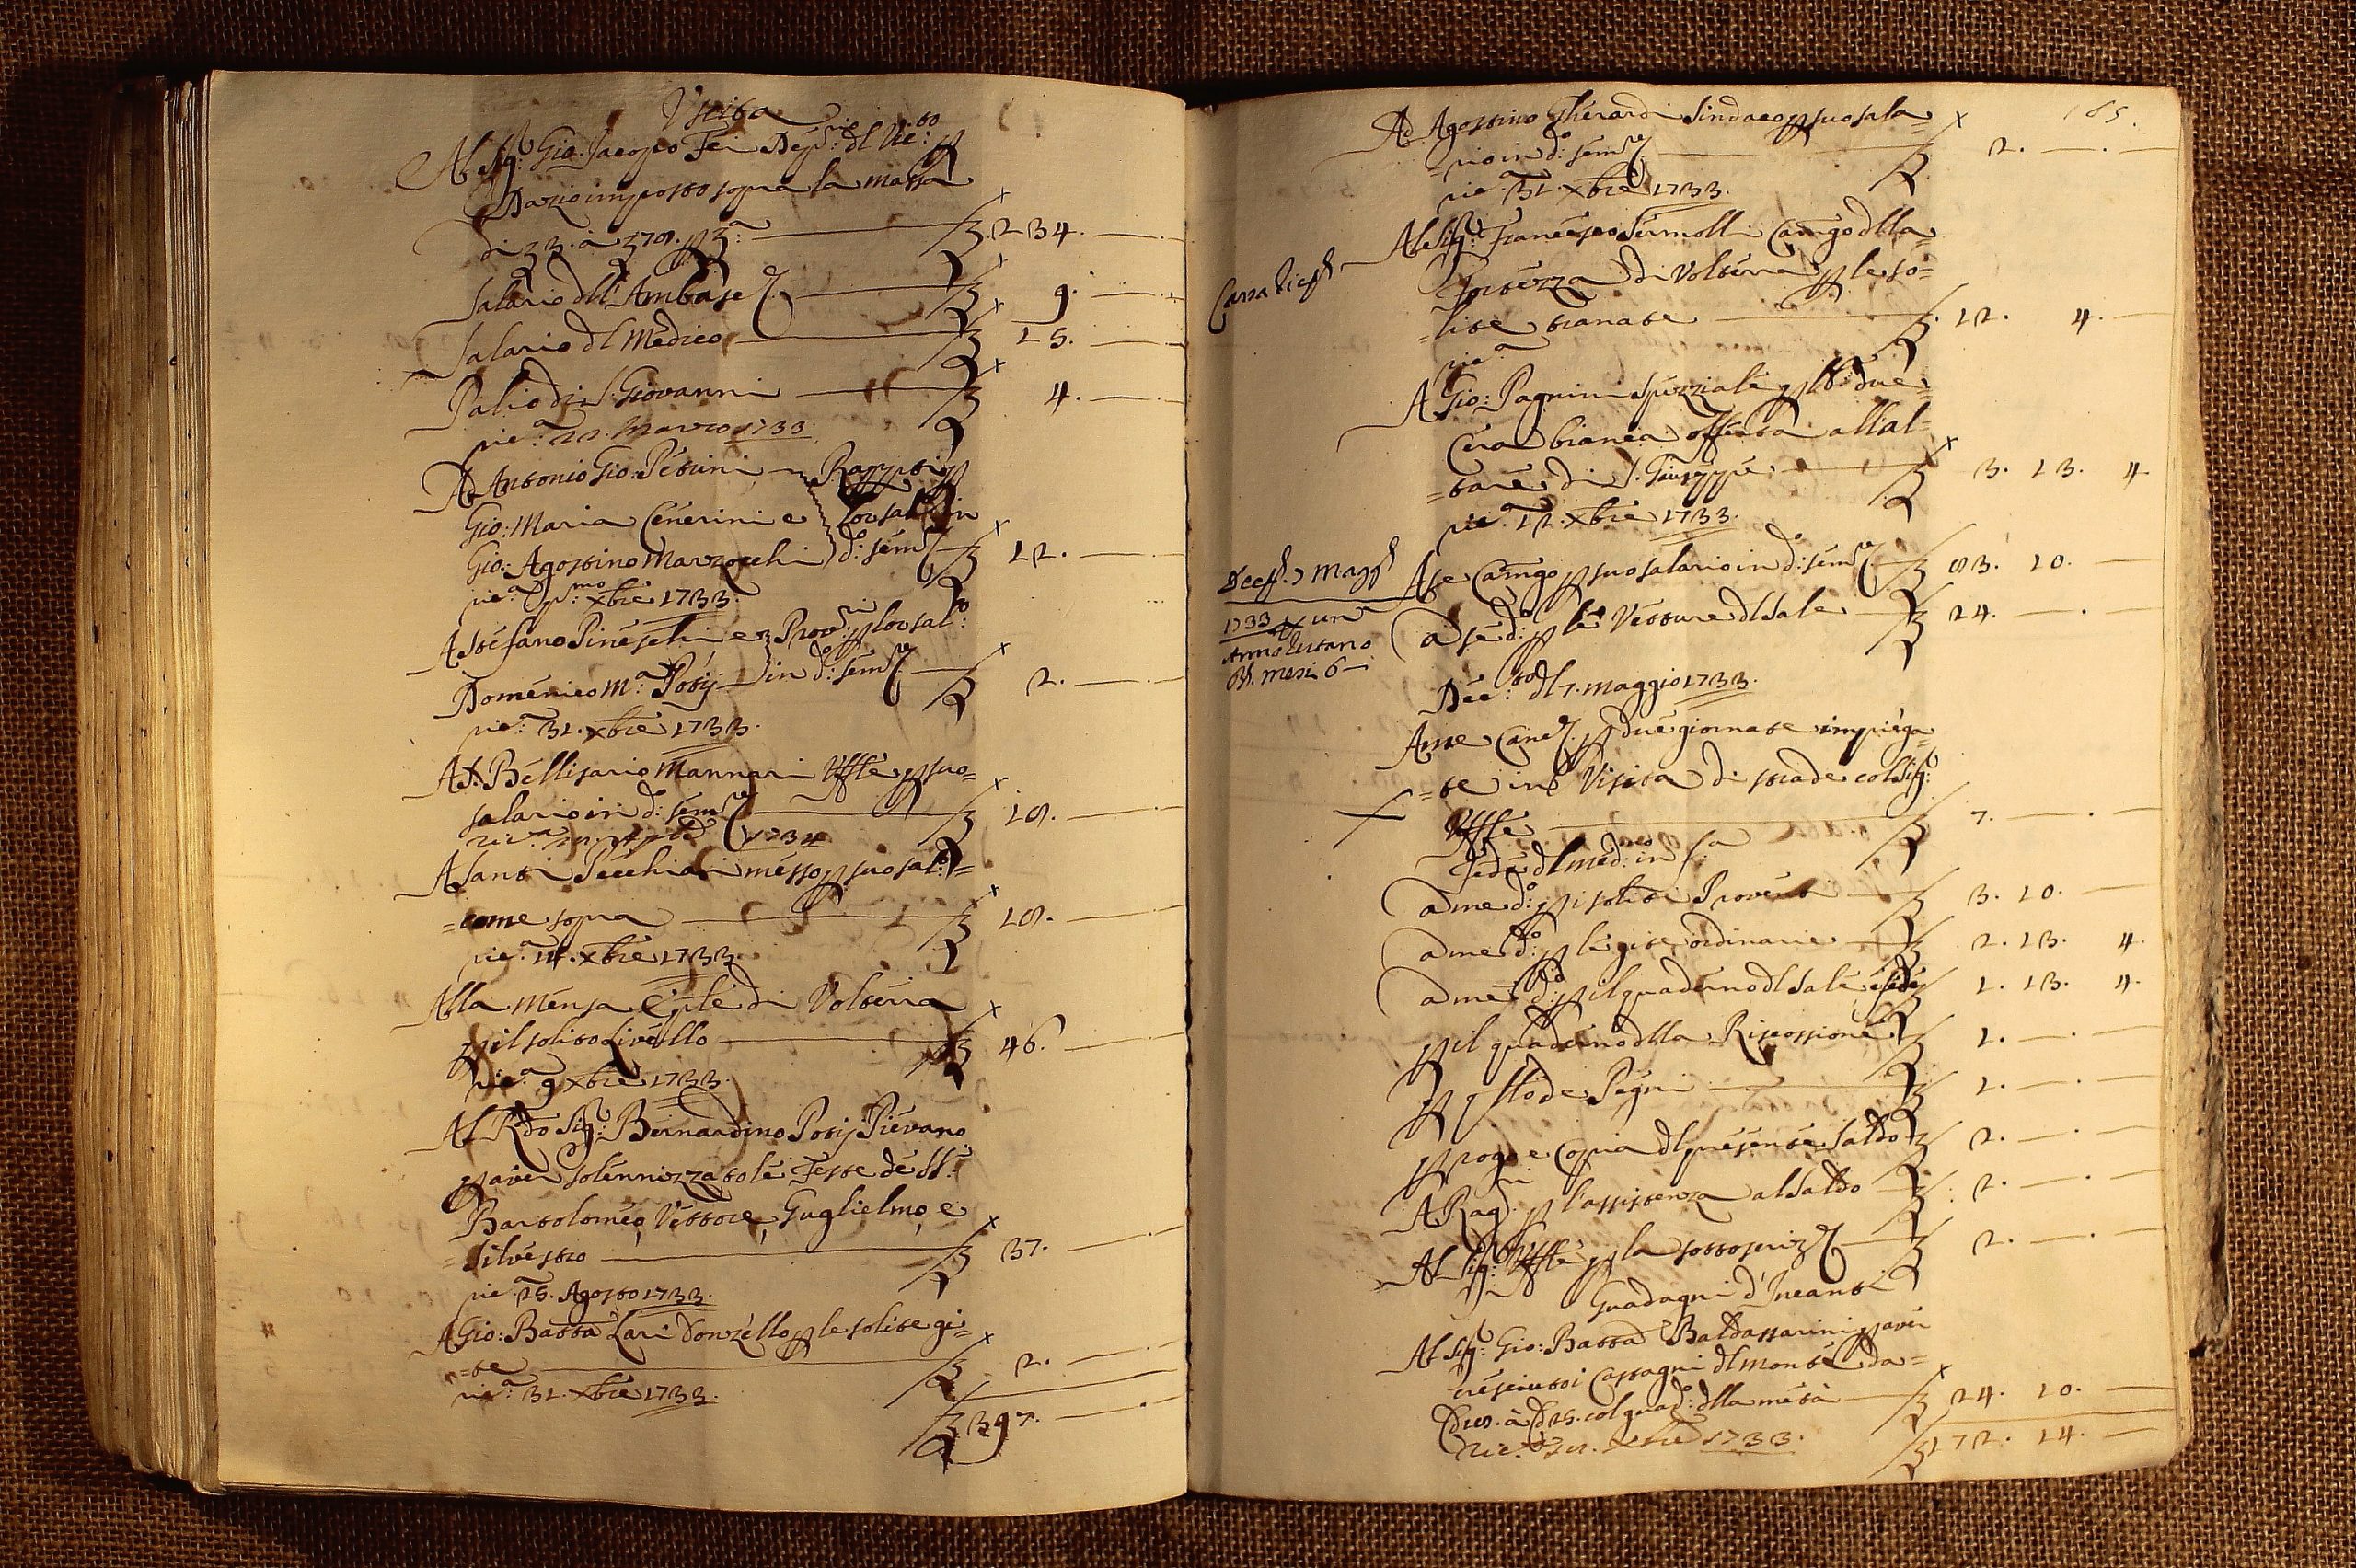 Uscita
Al Sig: Gio: Jacopo Fei Dep:rio dl Vic:to p
Dazio imposto sopra la massa
di £ 3. à £ 78. p £:a £ 234. — . —
Salario dll' Ambasc £ 9. — . —
Salario dl Medico £ 15. — . —
Palio di S. Giovanni £ 4. — . —
ric:a 22. Marzo 1733
A Antonio Gio: Petrini Rapp:ti p
Gio: Maria Cenerini e lor sal: in
Gio: Agostino Marzocchi d:o sem:re £ 12. — . —
ric:a p:mo xbre 1733.
A Stefano Pineschi e Prov:ri p lor sal:o
Domenico M:a Posij in d:o sem:re £ 2. — . —
ric:a 31. xbre 1733.
A S. Bellisario Mannari Uffle p suo
salario in d:o sem:re £ 18. — . —
ric:a 1734
A Santi Pecchiari messo p suo sal:o
= come sopra £ 18. — . —
ric:a 11. xbre 1733.
Alla Mensa Ep'le di Volterra
p il solito Livello £ 46. — . —
ric:a 9 xbre 1733.
Al R'do Sig: Bernardino Posij Pievano
p aver solennizzato le Feste de SS:
Bartolomeo, Vettore, Guglielmo, e
= Silvestro £ 37. — . —
ric: 25. Agosto 1733.
A Gio: Batta Lari Donzello p le solite gi=
=te £ 2. — . —
ric:a 31. xbre 1733.
£ 397. — . —
185.
Ad Agostino Gherardi Sindaco p suo sala=
=rio in d:o sem:re £ 2. — . —
ric:a 31. xbre 1733.
Al Sig: Francesco Sermolli Cam'go dlla
Fortezza di Volterra p le so=
=lite tranate £ 12. 4. —
ric:a
A Gio: Pagnini Speziale p lb: due
Cera bianca offerta all'al=
=tare di S. Giuseppe £ 3. 13. 4
ric:a 12. xbre 1733.
A se Cam'go p suo salario in d:o sem:re £ 83. 10. —
Dec 7 Magg
1733 p un
Anno
di mesi 6
a se d:o p le Vetture dl Sale £ 24. — . —
Dec:to dl 7. maggio 1733.
A me Canc p due giornate impiega
=te in Visita di strade col Sig:
Uffle £ 7. — . —
Fede dl med:mo in f:a
a me d:o p i soliti Proventi £ 3. 10. —
a me d:o p le gite ordinarie £ 2. 13. 4.
a me d:o p il quaderno dl Sale e fede £ 1. 13. 4.
p il quaderno dlla Riscossione £ 1. — . —
p q'llo de Pegni £ 1. — . —
p rogo e copia dl presente Saldo £ 2. — . —
A Rag:ri p l'assistenza al Saldo £ 2. — . —
Al Sig: Uffle p la sottoscriz £ 2. — . —
Guadagni d'Incanti
Al Sig: Gio: Batta Baldassarini p aver
cresciuto i Castagni dl monte da=
col quad:o dlla metà £ 24. 10. —
ric:a xbre 1733.
£ 172. 14. —